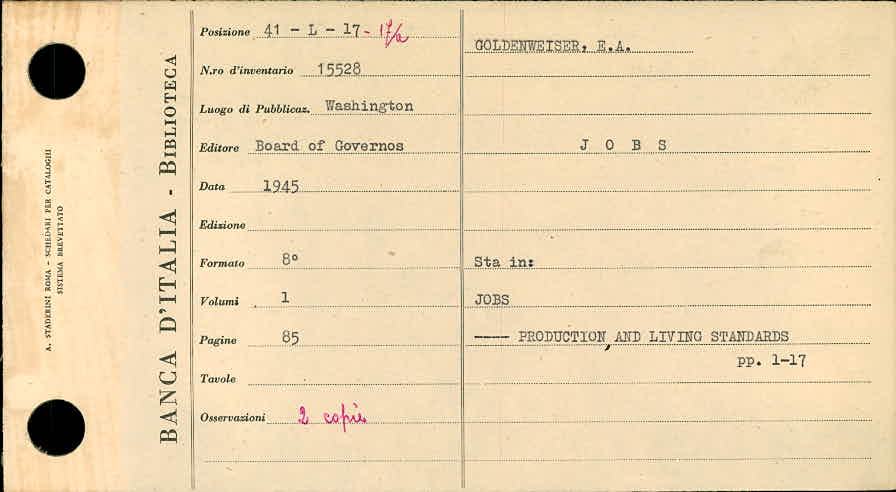 A. STADERINI ROMA - SCHEDARI PER CATALOGHI
SISTEMA BREVETTATO
BANCA D'ITALIA - BIBLIOTECA
Posizione 41 - L - 17 - 17/a
N.ro d'inventario 15528
Luogo di Pubblicaz. Washington
Editore Board of Governos
Data 1945
Edizione
Formato 8°
Volumi 1
Pagine 85
Tavole
Osservazioni 2 copie
GOLDENWEISER, E.A.
J O B S
Sta in:
JOBS
---- PRODUCTION, AND LIVING STANDARDS
pp. 1-17